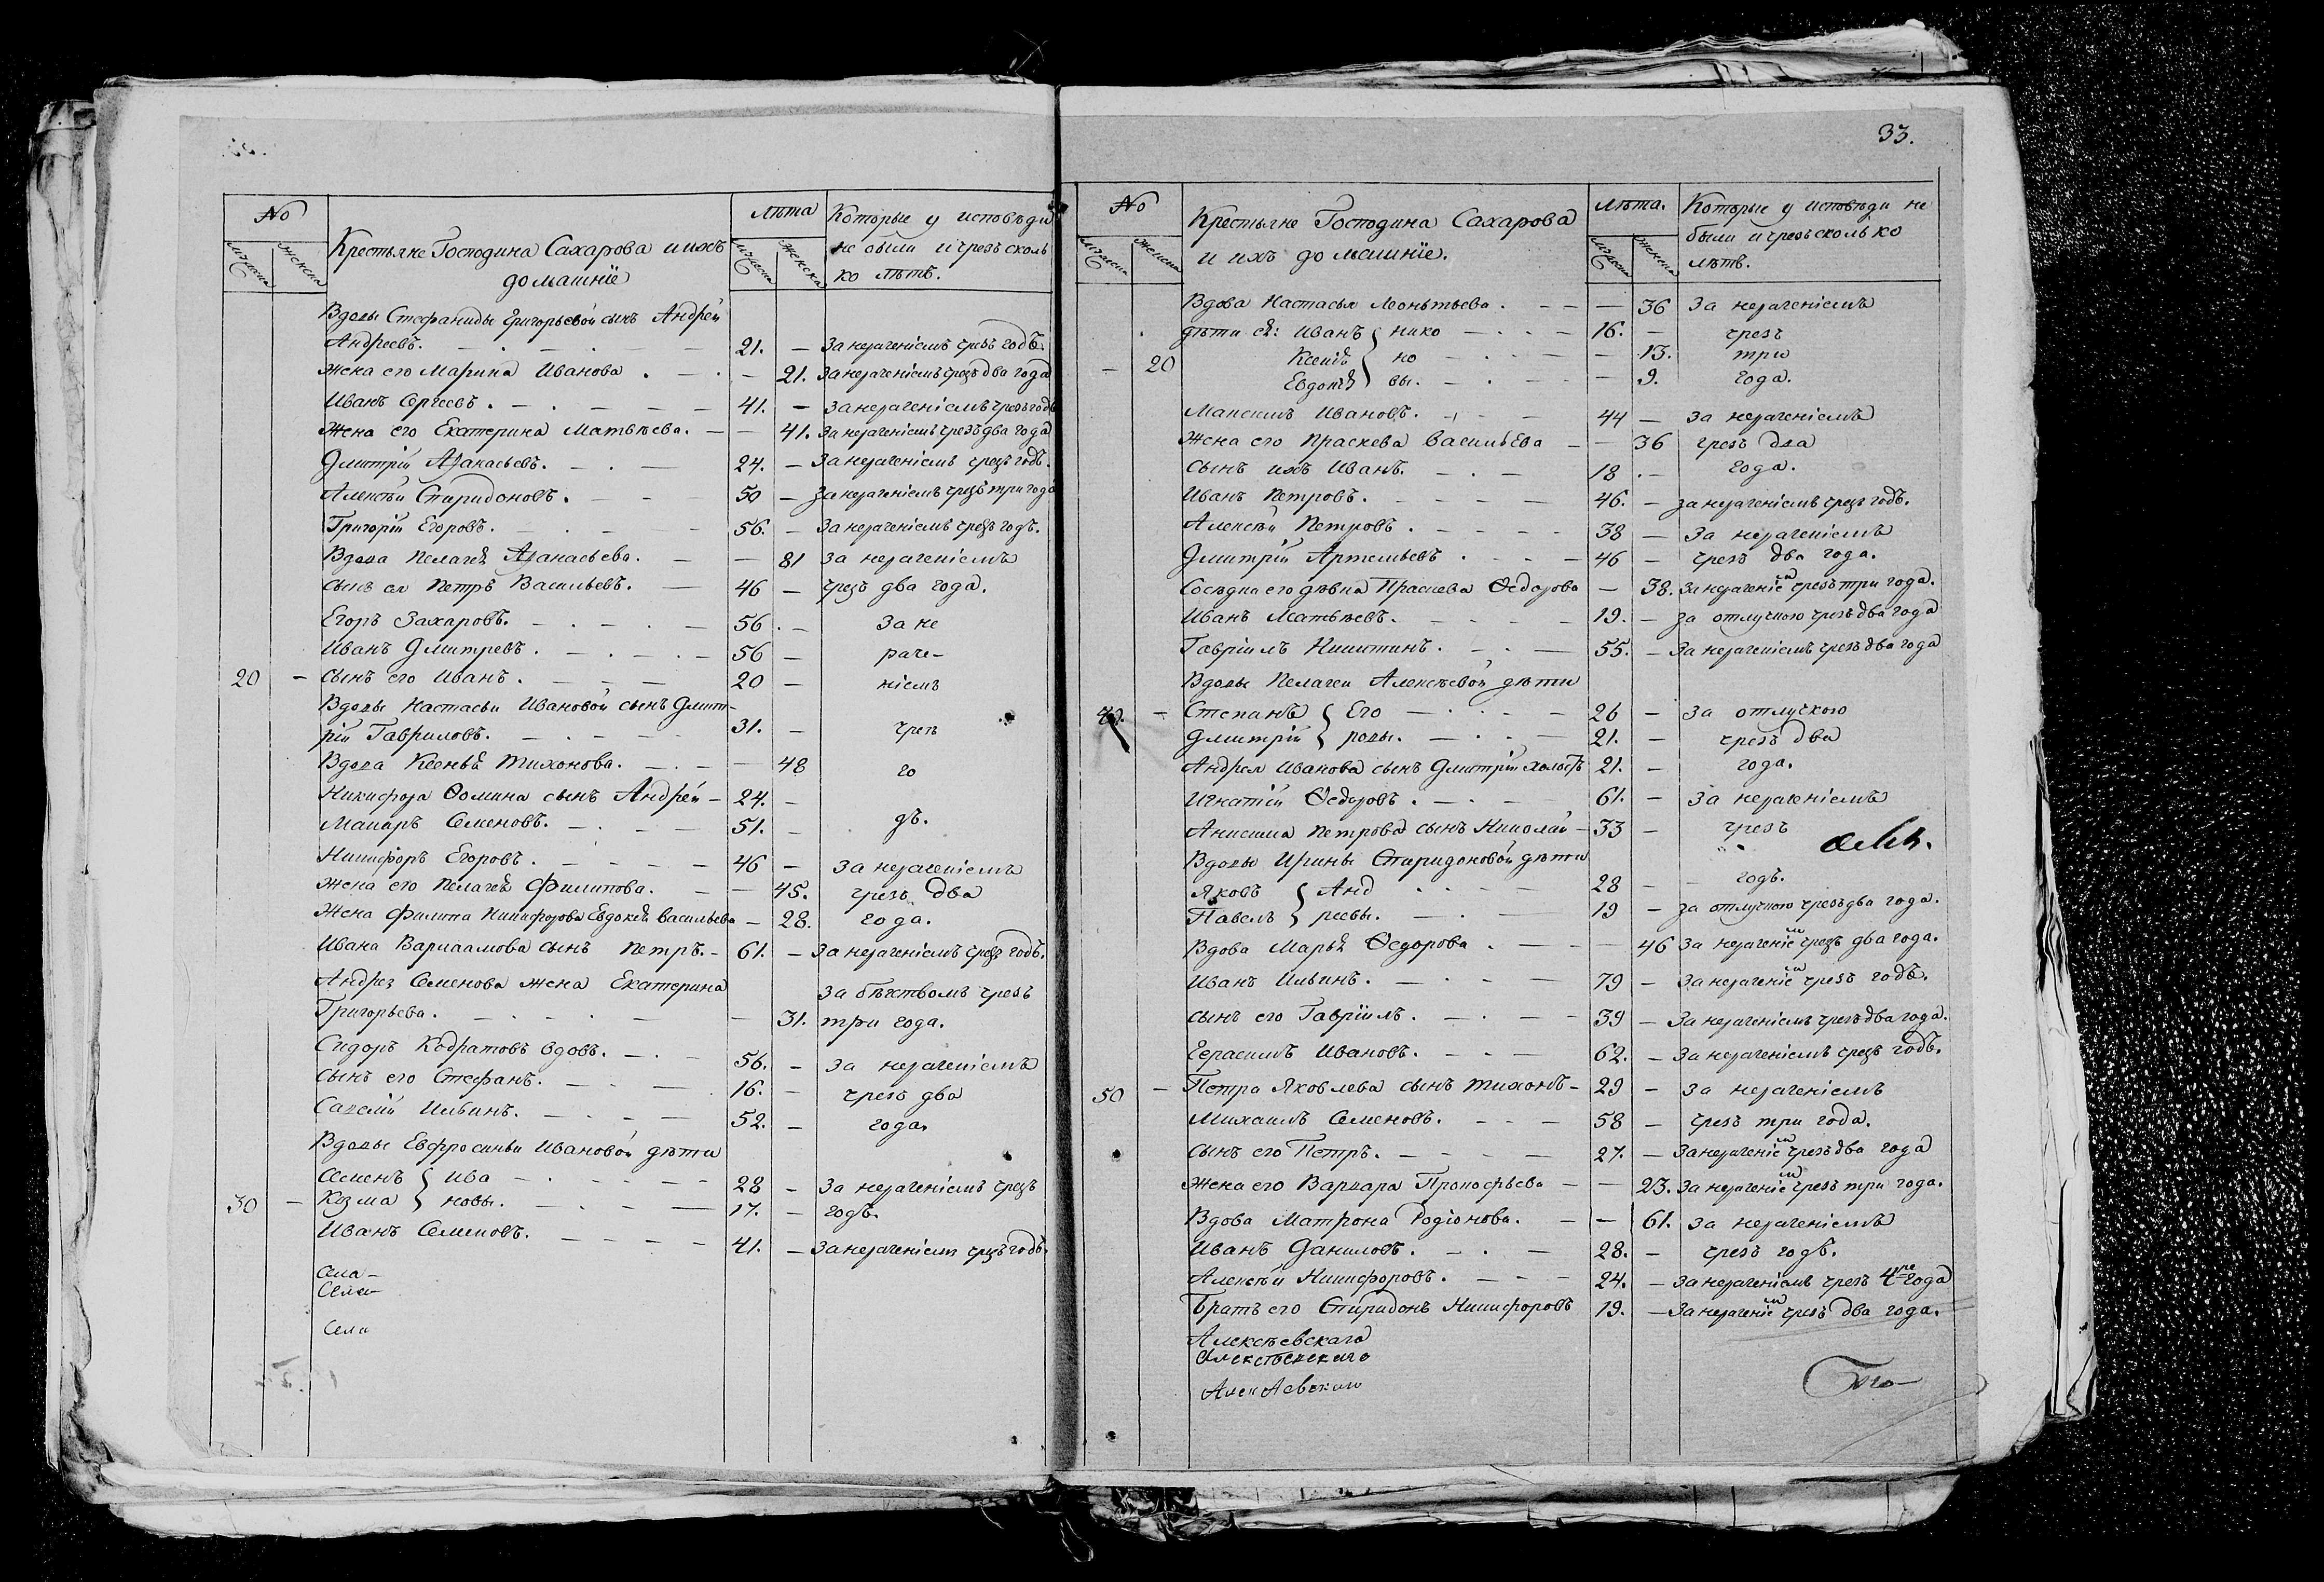 No
мужеска
женска
Крестьяне Господина Сахарова и ихъ
домашнїе
лѣта
мужеска
женска
Которые у исповѣди
не были и чрезъ сколь
ко лѣтъ.
Вдовы Стефаниды Григорьевой сынъ Андрей
Андреевъ. 21. — За нераченіемъ чрезъ годъ.
Жена его Марина Иванова. — 21. За нераченіемъ чрезъ два года
Иванъ Сергеевъ. 41. — За нераченіемъ чрезъ годъ
Жена его Екатерина Матвѣева. — 41. За нераченіемъ чрезъ два года
Дмитрій Аѳанасьевъ. 24. — За нераченіемъ чрезъ годъ.
Алексѣй Спиридоновъ. 50 — За нераченіемъ чрезъ три года
Григорій Егоровъ. 56. — За нераченіемъ чрезъ годъ.
Вдова Пелагея Аѳанасьева. — 81 За нераченіемъ
сынъ ея Петръ Васильевъ. 46 — чрезъ два года.
Егоръ Захаровъ. 56. — За не
Иванъ Дмитревъ. 56 — раче-
20 — сынъ его Иванъ. 20 — ніемъ
Вдовы Настасьи Ивановой сынъ Дмит-
рій Гавриловъ. 31. — чрезъ
Вдова Ксенья Тихонова. — 48 го
Никифора Ѳомина сынъ Андрей — 24. —
Макаръ Семеновъ. 51. — дъ.
Никифоръ Егоровъ. 46 — За нераченіемъ
Жена его Пелагея Филипова. — 45. чрезъ два
Жена Филипа Никифорова Евдокея Васильева — 28. года.
Ивана Варлаамова сынъ Петръ. — 61. — За нераченіемъ чрезъ годъ.
Андрея Семенова жена Екатерина За бѣгствомъ чрезъ
Григорьева. — 31. три года.
Сидоръ Кодратовъ вдовъ. 56. — За нераченіемъ
сынъ его Стефанъ. 16. — чрезъ два
Савелій Ильинъ. 52. — года.
Вдовы Евфросиньи Ивановой дѣти
Семенъ } Ива 28 — За нераченіемъ чрезъ
30 — Козма } новы. 17. — годъ.
Иванъ Семеновъ. 41. — За нераченіемъ чрезъ годъ.
Села-
Села
Села
33.
No
мужеска
женска
Крестьяне Господина Сахарова
и ихъ домашнїе.
лѣта.
мужеска
женска
Которые у исповѣди не
были и чрезъ сколько
лѣтъ.
Вдова Настасья Леонтьева. — 36 За нераченіемъ
дѣти ея: Иванъ } нико 16. — чрезъ
— 20 Ксенія } но — 13. три
Евдокея } вы. — 9. года.
Максимъ Ивановъ. 44 — За нераченіемъ
Жена его Праскева Васильева — 36 чрезъ два
сынъ ихъ Иванъ. 18. — года.
Иванъ Петровъ. 46. — За нераченіемъ чрезъ годъ.
Алексѣй Петровъ. 38 — За нераченіемъ
Дмитрій Артемьевъ 46 — чрезъ два года.
Сосѣдка его дѣвка Праскева Ѳедорова — 38. За нераченіемъ чрезъ три года.
Иванъ Матвѣевъ. 19. — За отлучкою чрезъ два года
Гаврїилъ Никитинъ. 55. — За нераченіемъ чрезъ два года
Вдовы Пелагеи Алексѣевой дѣти
40. — Степанъ } Его 26 — За отлучкою
Дмитрій } ровы. 21. — чрезъ два
Андрея Иванова сынъ Дмитрій холостъ 21. — года.
Игнатій Ѳедоровъ. 61. — За нераченіемъ
Анисима Петрова сынъ Николай — 33 — чрезъ
Вдовы Ирины Спиридоновой дѣти
Яковъ } Анд 28 — годъ.
Павелъ } реевы. 19 — За отлучкою чрезъ два года.
Вдова Марья Ѳедорова. — 46 За нераченіемъ чрезъ два года.
Иванъ Ильинъ. 79 — За нераченіемъ чрезъ годъ.
сынъ его Гаврїилъ. 39 — За нераченіемъ чрезъ два года.
Герасимъ Ивановъ. 62. — За нераченіемъ чрезъ годъ.
50 — Петра Яковлева сынъ Тихонъ — 29 — За нераченіемъ
Михаилъ Семеновъ. 58 — чрезъ три года.
сынъ его Петръ. 27. — За нераченіемъ чрезъ два года
Жена его Варвара Прокофьева — 23. За нераченіемъ чрезъ три года.
Вдова Матрона Родіонова. — 61. За нераченіемъ
Иванъ Даниловъ. 28. — чрезъ годъ.
Алексѣй Никифоровъ. 24. — За нераченіемъ чрезъ 4ре года
Братъ его Спиридонъ Никифоровъ 19. — За нераченіемъ чрезъ два года.
Алексѣевскаго
Алексѣевскаго
Алексѣевскаго